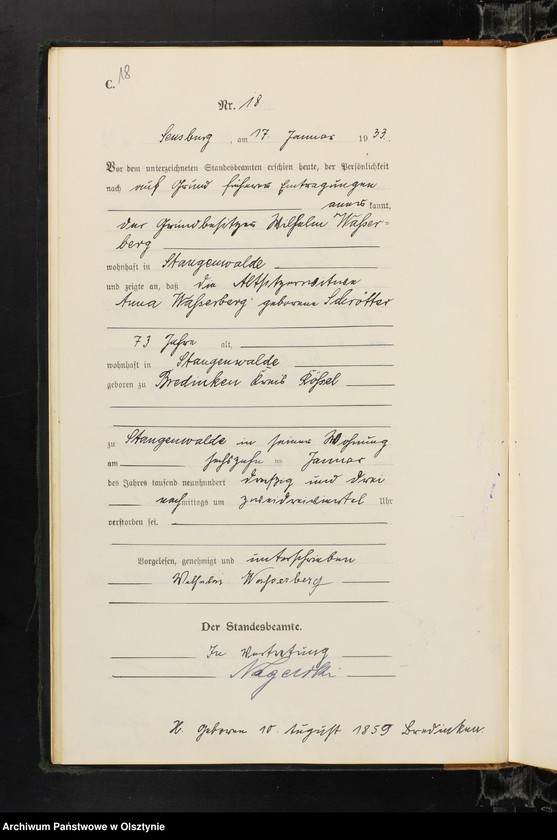 C. 18
Nr. 18
Sensburg, am 17. Januar 1933.
Vor dem unterzeichneten Standesbeamten erschien heute, der Persönlichkeit
nach auf Grund früherer Eintragungen
anerkannt,
der Grundbesitzer Wilhelm Wasser-
berg
wohnhaft in Stangenwalde
und zeigte an, daß die Altsitzerwitwe
Anna Wasserberg geborene Schrötter
73 Jahre alt,
wohnhaft in Stangenwalde
geboren zu Bredinken Kreis Rößel
zu Stangenwalde in seiner Wohnung
am sechszehn ten Januar
des Jahres tausend neunhundert dreißig und drei
nachmittags um zweidreiviertel Uhr
verstorben sei.
Vorgelesen, genehmigt und unterschrieben
Wilhelm Wasserberg
Der Standesbeamte.
In Vertretung
geboren 10. August 1859 Bredinken.
Archiwum Państwowe w Olsztynie